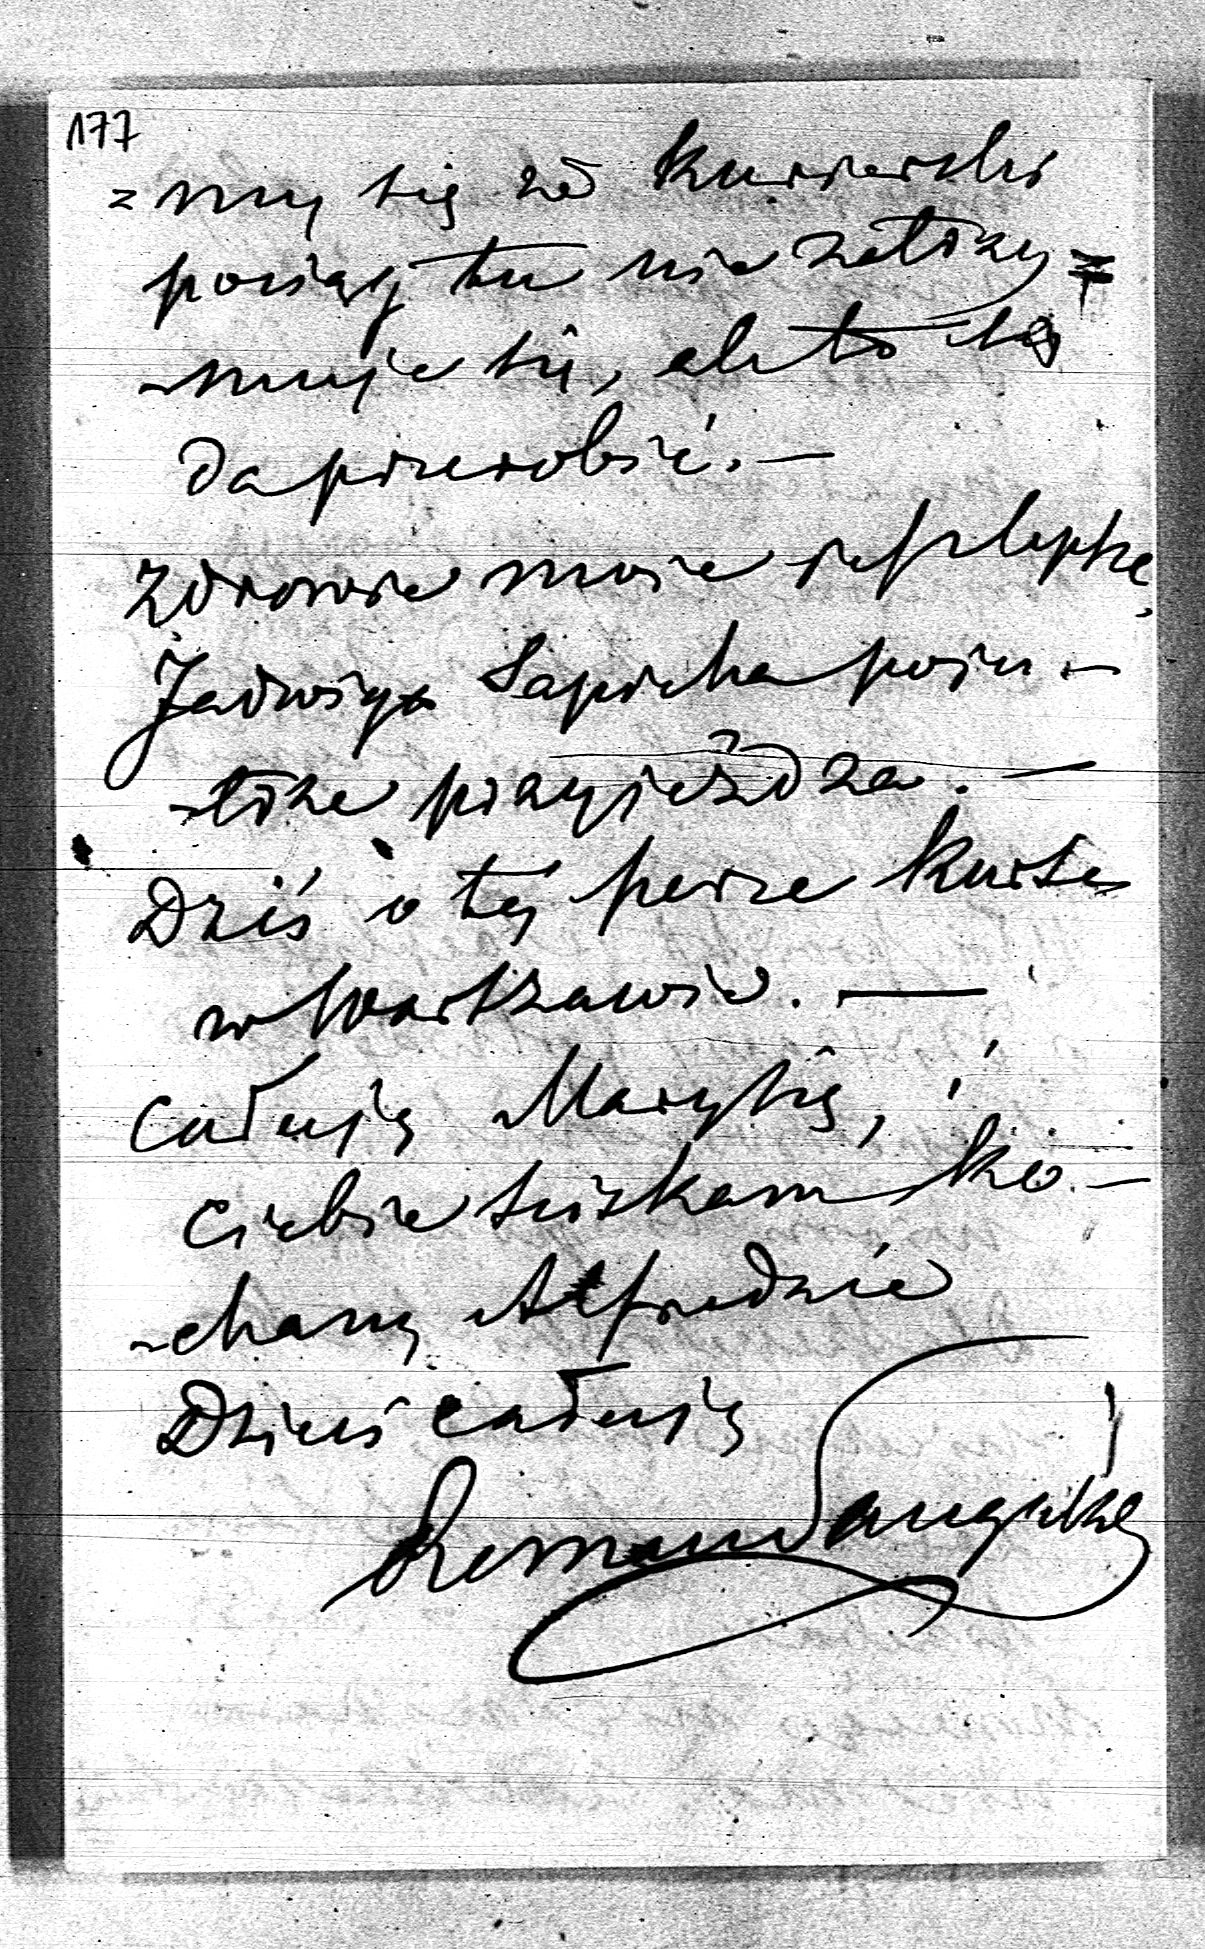 177
= my się że kurierski
pociąg tu nie zatrzy=
-muje się, ale to się
da przerobić. —
Zdrowie moje jest lepsze,
Jadwiga Sapieha poju-
-trze przyjeżdża. —
Dziś o tej porze
w Warszawie. —
Całuję Marysię, i
ciebie ściskam ko-
-chany Alfredzie
Dzieci całuję
Roman Sanguszko